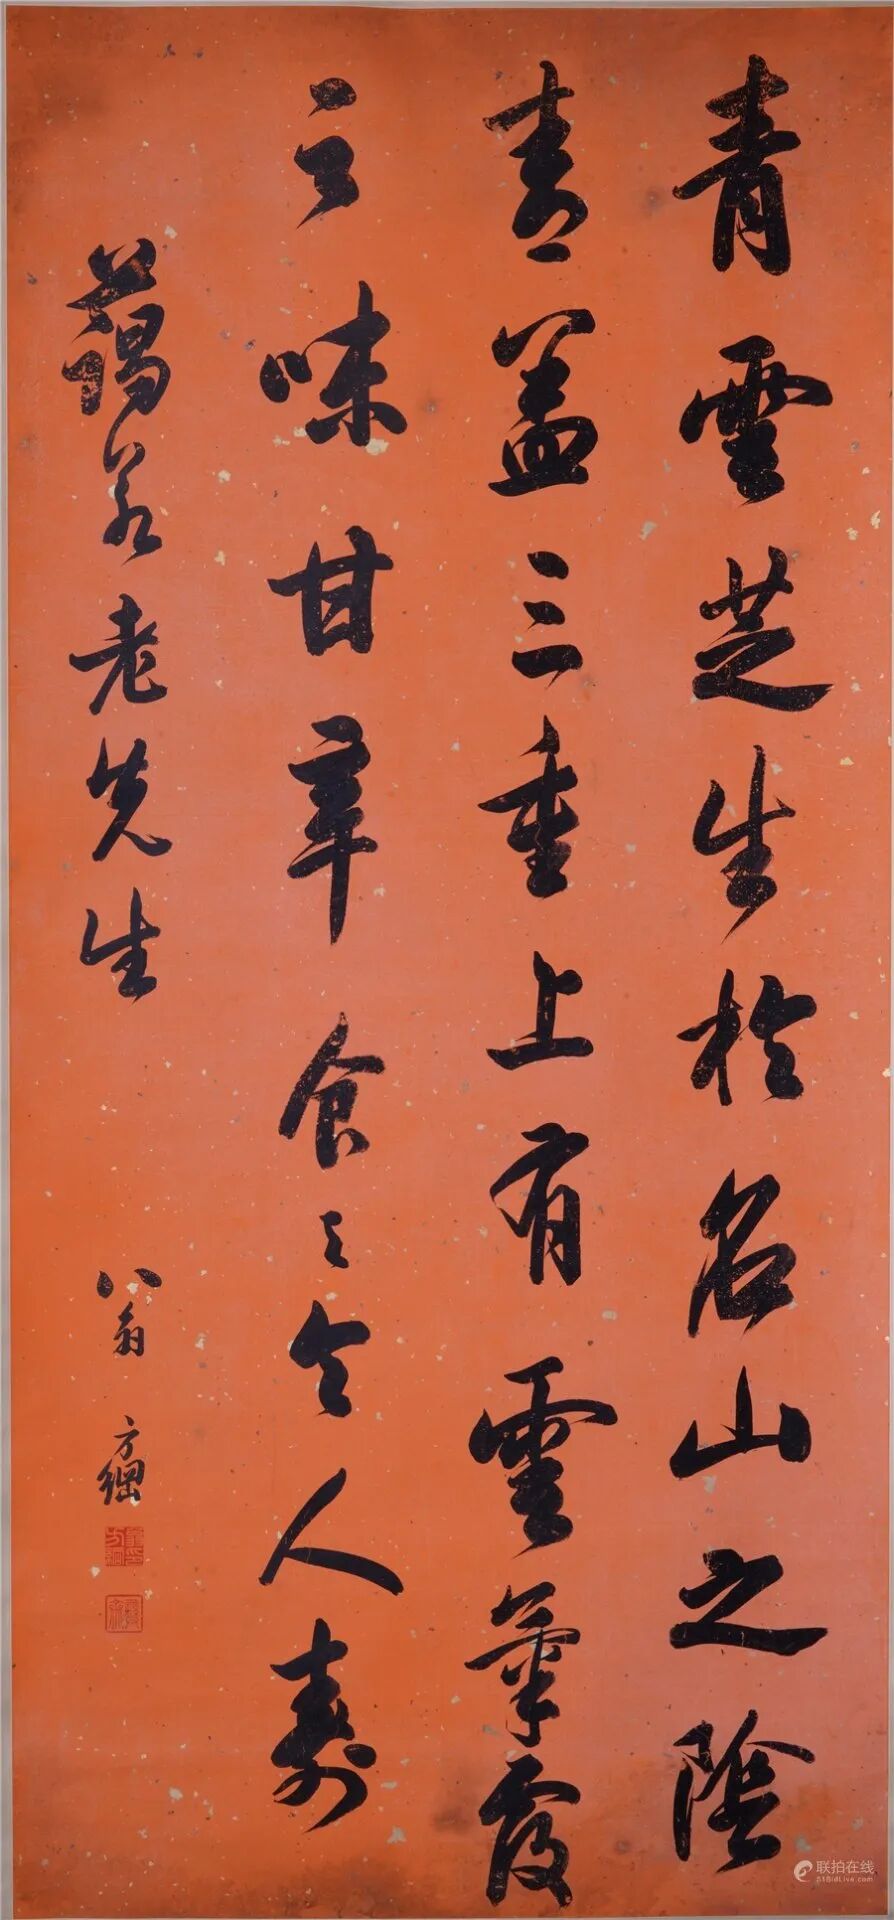 青雲芝生於名山之陰
青蓋三重上有雲氣覆
之味甘辛食之令人壽
藹若老先生
翁方綱
联拍在线
51BidLive.com